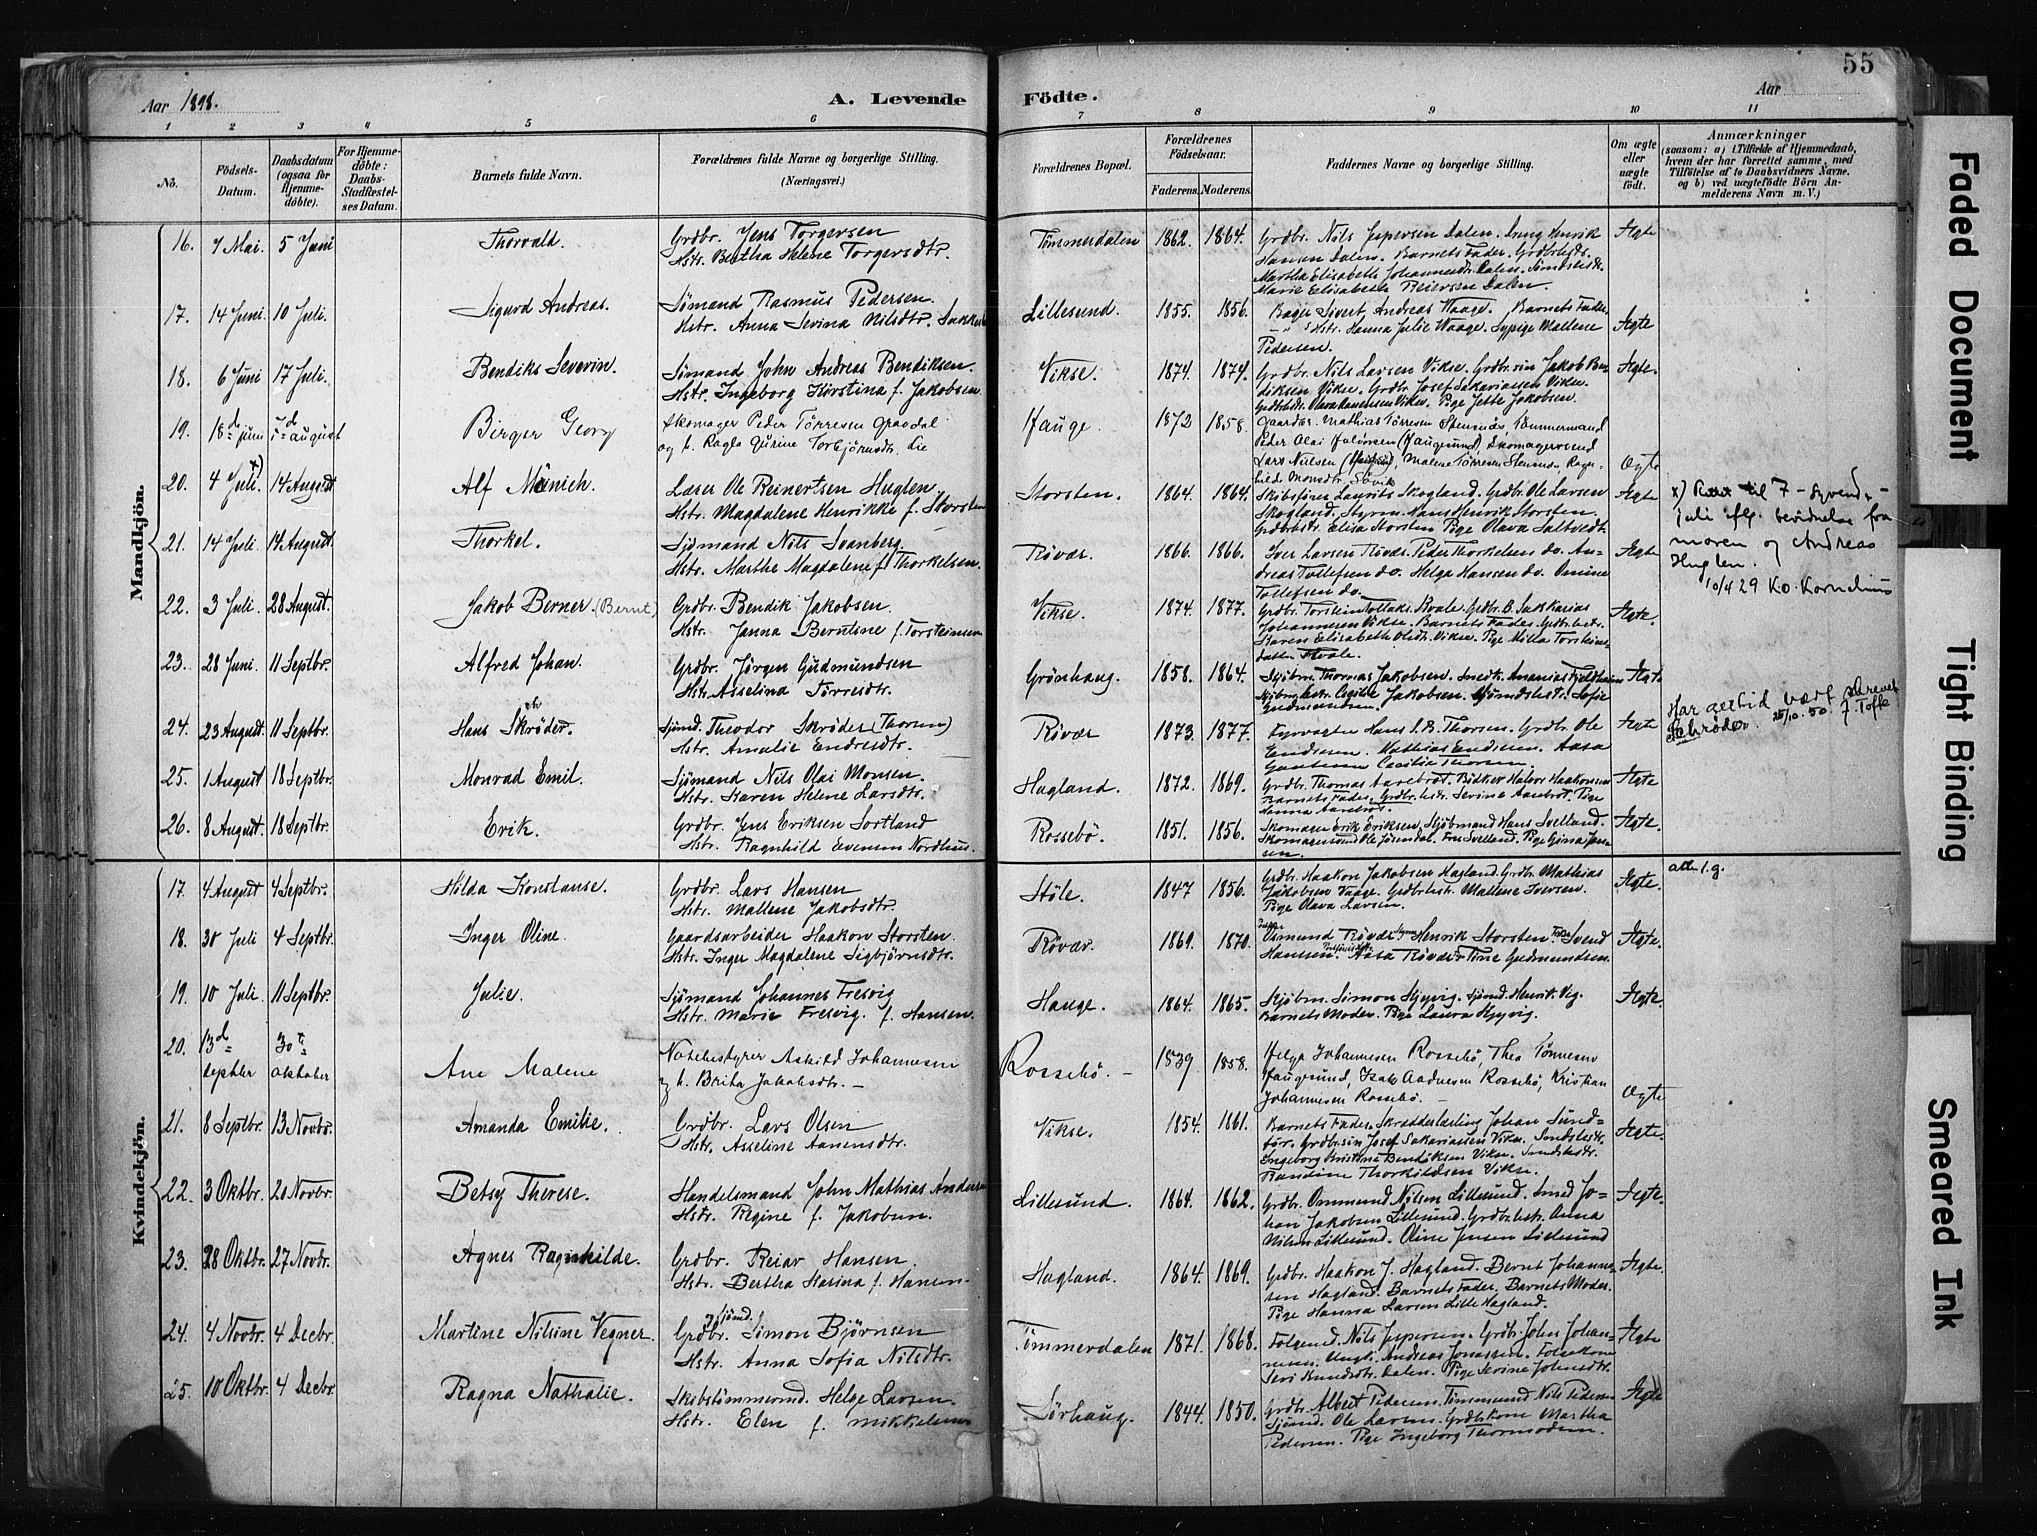 55
Aar 1898. A. Levende Födte. Aar
1 2 3 4 5 6 7 8 9 10 11
No. Födsels-Datum. Daabsdatum (ogsaa for Hjemmedöbte). For Hjemmedöbte: Daabs-Stadfæstelses Datum. Barnets fulde Navn. Forældrenes fulde Navne og borgerlige Stilling. (Næringsvei.) Forældrenes Bopæl. Forældrenes Födselsaar. Faderens. Moderens. Faddernes Navne og borgerlige Stilling. Om ægte eller uægte födt. Anmærkninger (saasom: a) i Tilfælde af Hjemmedaab, hvem der har forrettet samme, med Tilföielse af to Daabsvidners Navne, og b) ved uægtefödte Börn Anmelderens Navn m. V.)
Mandkjön.
16. 7 Mai. 5 Juni Thorvald. Grdbr. Jens Torgersen Tömmerdalen 1862. 1864. Grdbr. Nils Jespersen Dalen. Dreng Henrik Ægte
Hstr. Bertha Helene Torgersdtr. Hansen Dalen. Barnets Fader. Grdbrhstr.
Martha Elisabeth Johannesdtr. Dalen.
Marie Elisabeth Reiersen Dalen.
17. 14 Juni. 10 Juli. Sigurd Andreas. Sjømand Rasmus Pedersen. Lillesund. 1855. 1856. Bager Sivert Andreas Waage. Barnets Fader. Ægte
Hstr. Anna Serina Nilsdtr. Hstr. Hanna Julie Waage. Sypige Mallene
Pedersen.
18. 6 Juni 17 Juli. Bendiks Severin. Sømand John Andreas Bendiksen. Vikse. 1874. 1874. Grdbr. Nils Larsen Vikse. Grdbr.søn Jakob Ben Ægte.
Hstr. Ingeborg Kirstina f. Jakobsen. diksen Vikse. Grdbr. Josef Sakariasen Vikse.
Pige Jette Jakobsen.
19. 18d juni august Birger Georg Skomager Peder Törresen Graadal Hauge. 1872 1858. Gaardbr. Mathias Törresen Stensnæs, Tömmermand
og h. Ragla Gurine Torbjörnsdtr. Lie Peder Olai Halvorsen (Haugesund), Skomagersvend
Lars Nielsen, Malene Törresen Ægte
20. 4 Juli x) 14 August Alf Münich. Lærer Ole Reinertsen Huglen. Storsten. 1864. 1864. Skibsfører Laurits Skogland. Grdbr. Ole Larsen Ægte
Hstr. Magdalene Henrikke f. Storsten Skogland. Styrm. Hans Henrik Storsten.
Grdbrhstr. Elisa Storsten Pige Olava Saltvedt.
x) Rettet til 7 – syvende –
juli iflg. bevidnelse fra
moren og Andreas
Huglen.
10/4 29 Ko. Kornelius
21. 14 Juli. 14 August. Thorkel. Sjømand Nils Svanberg. Røvær. 1866. 1866. Iver Larsen Røvær. Peder Thorkelsen do. An- Ægte
Hstr. Marthe Magdalene f. Thorkelsen. dreas Tollefsen do. Helga Hansen do. Omine
Tollefsen do.
22. 3 Juli. 28 August. Jakob Berner. (Bernt) Grdbr. Bendik Jakobsen. Vikse. 1874. 1877. Grdbr. Torstein Kvale. Grdbr. B. Sakkarias Ægte.
Hstr. Janna Berntine f. Torsteinsen Johannesen Vikse. Barnets Fader. Grdbrhstr.
Karen Elisabeth Olsdtr. Vikse. Pige Milla Torsteins
datter Kvale.
23. 28 Juni. 11 Septbr. Alfred Johan. Grdbr. Jørgen Gudmundsen Grönhaug. 1858. 1864. Thomas Jakobsen. Smedk. Ananias Fjeldheim Ægte
Hstr. Asselina Torresdtr. Cecilie Jakobsen. Sømdshstr. Sofie
Gudmundsen.
24. 23 August. 11 Septbr. Hans Skröder. Sjømd. Theodor Skröder (Thorsen) Røvær 1873. 1877. Fyrvogter Hans S. B. Thorsen. Grdbr. Ole Ægte
Hstr. Amalie Endresdtr. Endresen. Mathias Endresen. Aasa
Cecilie Thorsen.
Har altid vært skrevet
Schröder. 25/10. 50. J. Tofte
25. 1 August 18 Septbr. Monrad Emil. Sjømand Nils Olai Monsen. Hagland. 1872. 1869. Grdbr. Thomas Aarebrot. Bödker Halvor Haakonsen Ægte
Hstr. Karen Helene Larsdtr. Barnets Fader. Grdbr.hstr. Serine Aarebrot. Pige
Hanna Aarebrot.
26. 8 August. 18 Septbr. Erik. Grdbr. Jens Eriksen Sortland Rossebö. 1851. 1856. Skomager Erik Eriksen. Skjöbmand Hans Svelland. Ægte.
Hstr. Ragnhild Evensen Nordhus. Frue Svelland. Pige Gina Jan
sen.
Kvindekjön.
17. 4 August 4 Septbr. Hilda Konstanse. Grdbr. Lars Hansen Stöle. 1847 1856. Grdbr. Haakon Jakobsen Hagland. Grdbr. Mathias Ægte.
Hstr. Mallene Jakobsdtr. Jakobsen Vaage. Grdbrhstr. Mallene Iversen.
Pige Olava Larsen.
18. 30 Juli 4 Septbr. Inger Oline. Gaardsarbeider Haakon Storsten. Røvær. 1869. 1870. Osmund Røvær. Henrik Storsten. Svend Ægte.
Hstr. Inger Magdalene Sigbjörnsdtr. Hanssen. Aasa Røvær. Tine Gudmundsen.
19. 10 Juli. 11 Septbr. Julie. Sjömand Johannes Fresvig Hauge. 1864. 1865. Skjöbm. Simon Skjyvig. Sjömd. Henrik Vig. Ægte.
Hstr. Marie Fresvig. f. Hansen. Barnets Moder. Pige Laura Skjyvig.
20. 13d septbr 30te oktober Ane Malene Notebestyrer Askild Johannesen Rossebö. – 1839 1858. Helga Johannesen Rossebö, Thea Tönnesen
og h. Brita Jakobsdtr. – Haugesund, Isak Aadnesen Rossebö, Kristian Ægte
Johannesen Rossebö. –
21. 8 Septbr. 13 Novbr. Amanda Emilie. Grdbr. Lars Olsen Vikse. 1854. 1861. Barnets Fader. Skræderlærling Johan Sund- Ægte.
Hstr. Asseline Aanensdtr. för. Grdbrsøn Josef Sakariasen Vikse.
Ingeborg Kristine Bendiksen Vikse.
Randine Thorkildsen Vikse.
22. 3 Oktbr. 20 Novbr. Betsy Therese. Handelsmand John Mathias Andersen Lillesund. 1864. 1862. Grdbr. Ommund Nilsen Lillesund. Smed Jo- Ægte.
Hstr. Regine f. Jakobsen. han Jakobsen Lillesund. Grdbrhstr. Anna
Nilsen Lillesund. Oline Jensen Lillesund
23. 28 Oktbr. 27 Novbr. Agnes Ragnhilde. Grdbr. Reiar Hansen. Hagland. 1864. 1869. Grdbr. Haakon J. Hagland. Bernt Johanne- Ægte.
Hstr. Bertha Karina f. Hansen sen Hagland. Barnets Fader. Barnets Moder.
Pige Hanna Larsen Lille Hagland.
24. 4 Novbr. 4 Decbr. Martine Nilsine Vegner. Grdbr. og Sjømd. Simon Bjørnsen Tömmerdalen 1871. 1868. Folgemd. Nils Jespersen. Grdbr. John Johan- Ægte
Hstr. Anna Sofia Nilsdtr. nesen. Ungk. Andreas Jonassen. Folgekone
Siri Knudsdtr. Dalen. Pige Serine Johnsdtr.
25. 10 Oktbr. 4 Decbr. Ragna Nathalie. Skibstömmermd. Helge Larsen. Sörhaug. 1844. 1850. Grdbr. Albert Pedersen. Tömmermd Nils Pedersen Ægte
Hstr. Elen f. Mikkelsen Sjømd. Ole Larsen. Grdbrkone Martha
Pedersen. Pige Ingeborg Thormodsen.
Faded Document
Tight Binding
Smeared Ink